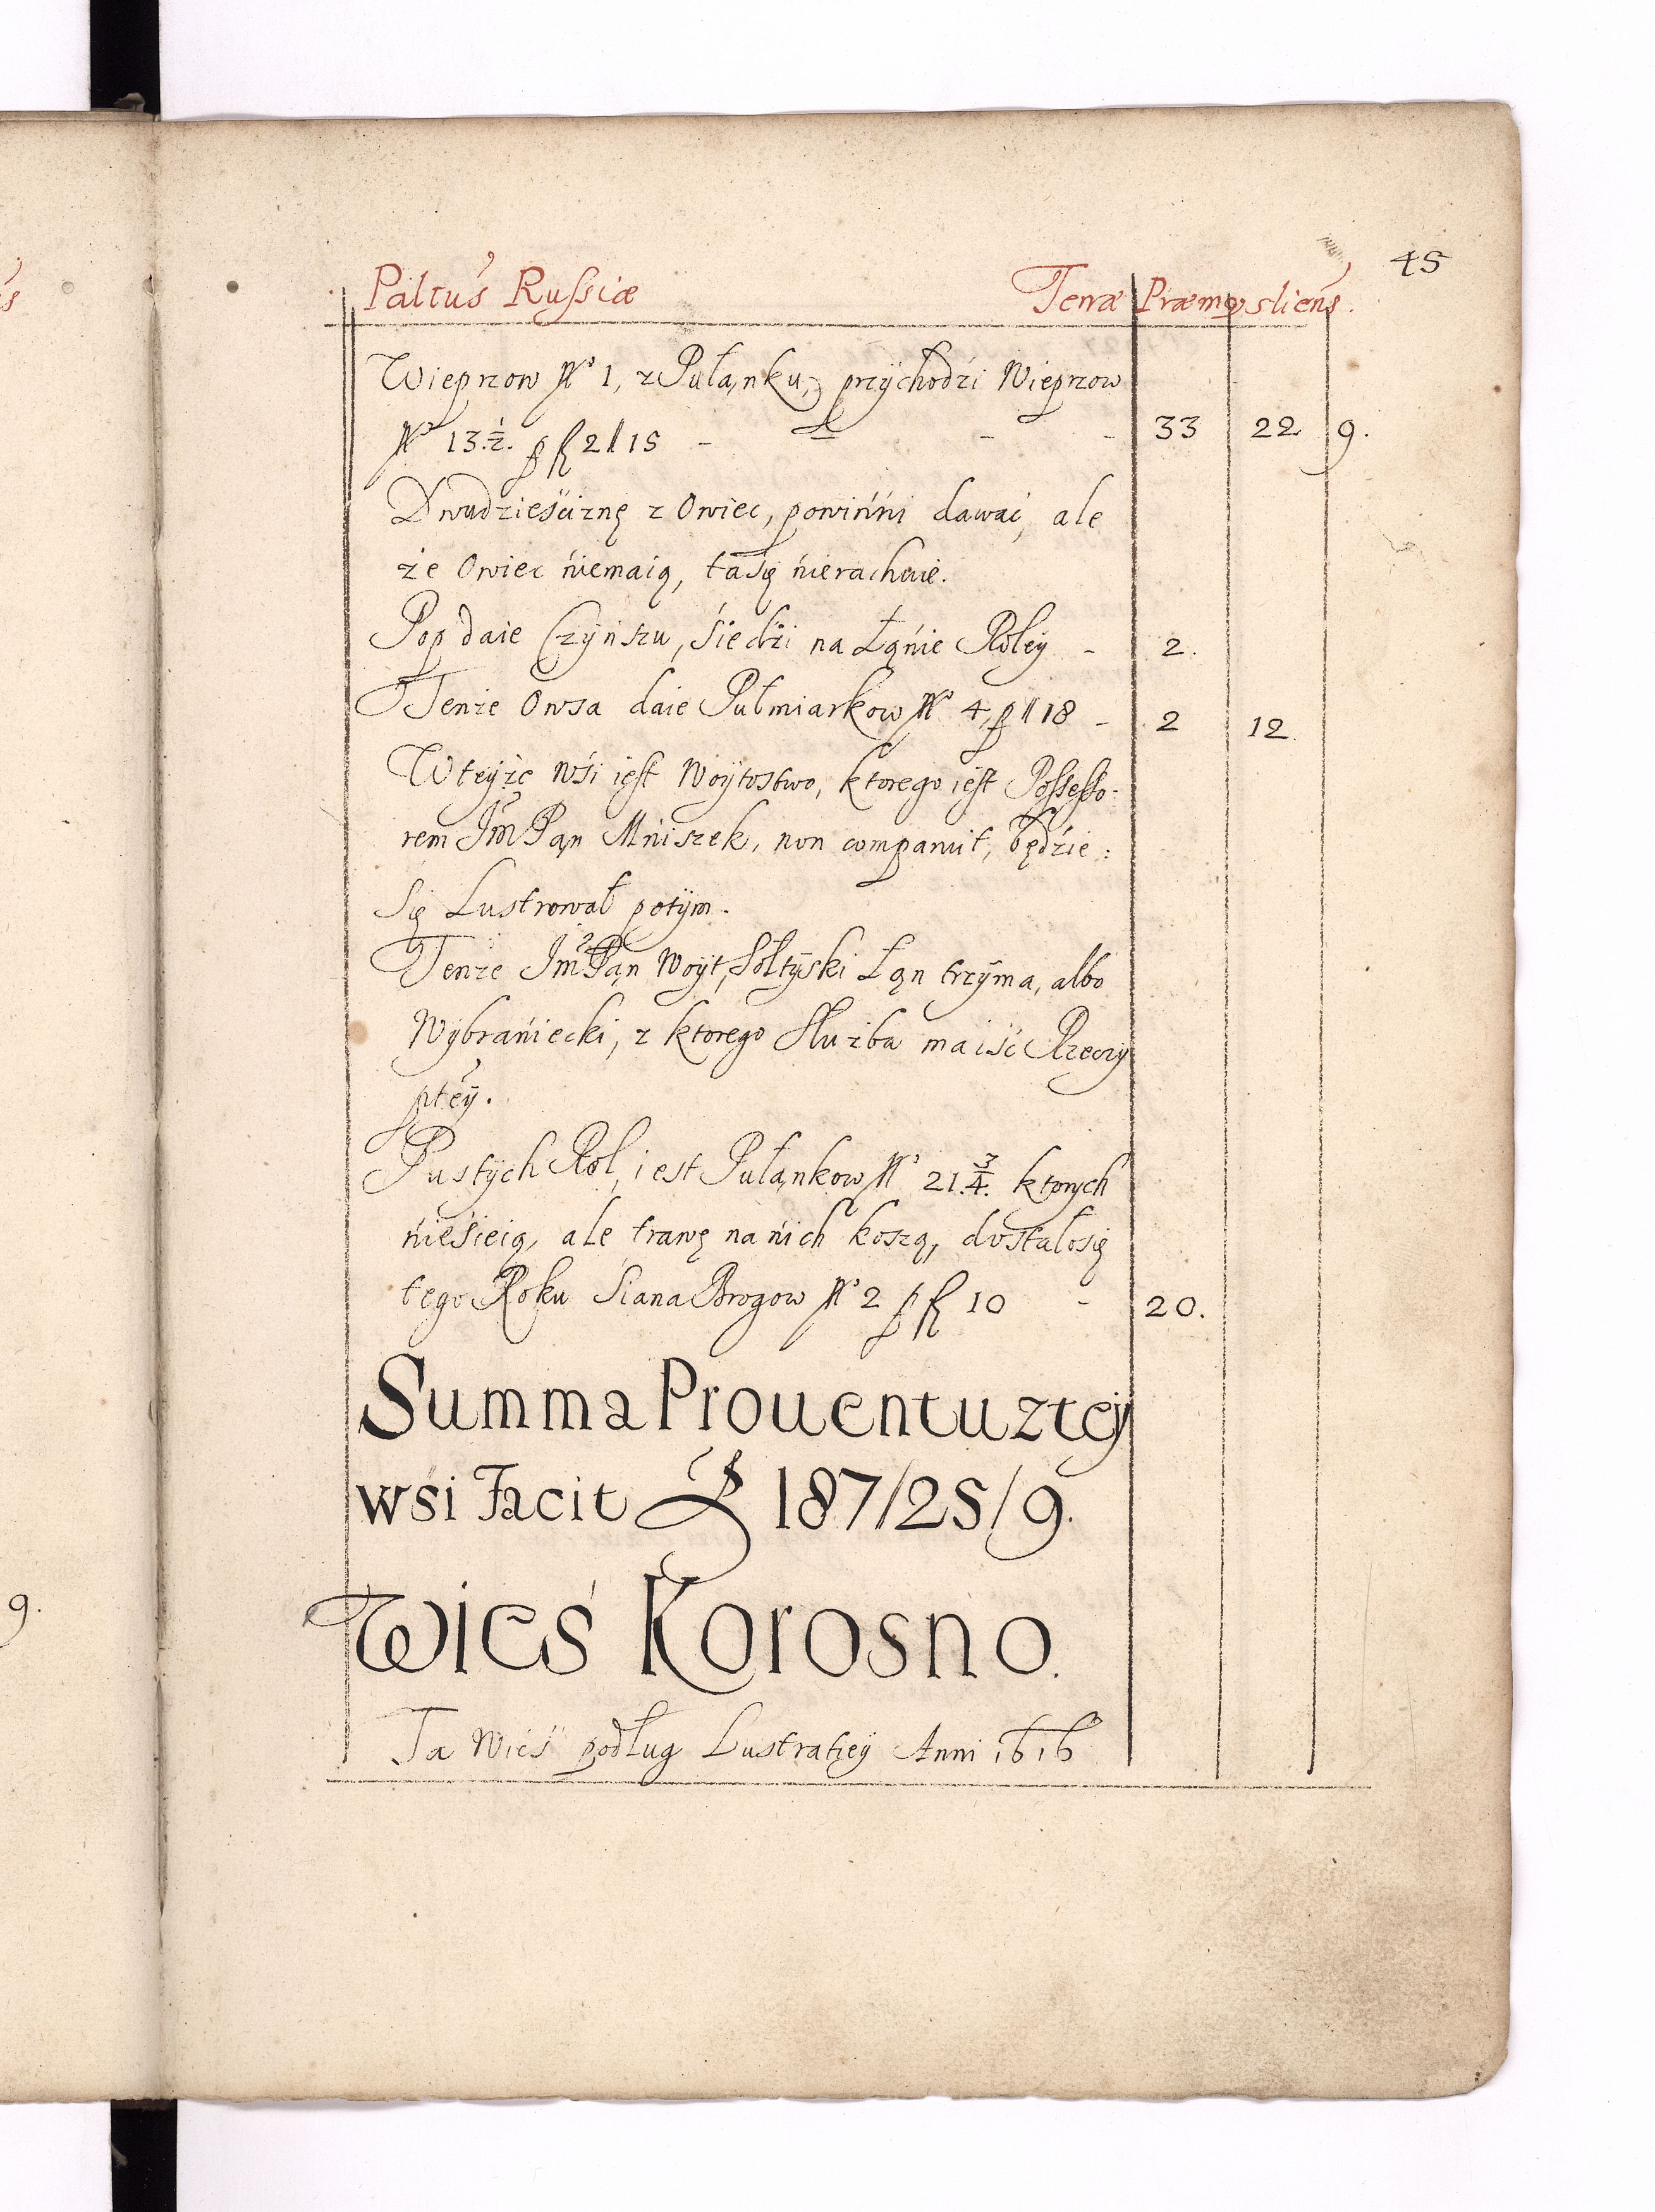 45
Paltus Russiæ Terræ Præmysliens.
Wieprzow N° 1, z Pułanku, przychodzi Wieprzow
N° 13. 1/2. p fl 2 // 15 - - - - 33 22 9.
Dwudzieściznę z Owiec, powinni dawać, ale
że Owiec niemaią, ta się nierachuie.
Pop daie Czynszu, siedzi na Łanie Roley - 2.
Tenże Owsa daie Pułmiarkow N° 4, p // 18 - 2 12.
W teyże wśi iest Woytostwo, ktorego iest Possesso:
rem Jm Pan Mniszek, non comparuit, będzie:
się Lustrował potym.
Tenże Jm Pan Woyt, Sołtyski Łan trzyma, albo
Wybraniecki, z ktorego Służba ma iść Rzeczy
ptey.
Pustych Rol, iest Pułankow N° 21. 3/4. ktorych
niesieią, ale trawę na nich koszą, dostałosię
tego Roku Siana Brogow N° 2 p fl 10 - 20.
Summa Prouentu z tey
wśi Facit fl 187/25/9.
Wieś Korosno.
Ta Wieś podług Lustratiey Anni 1616
9.